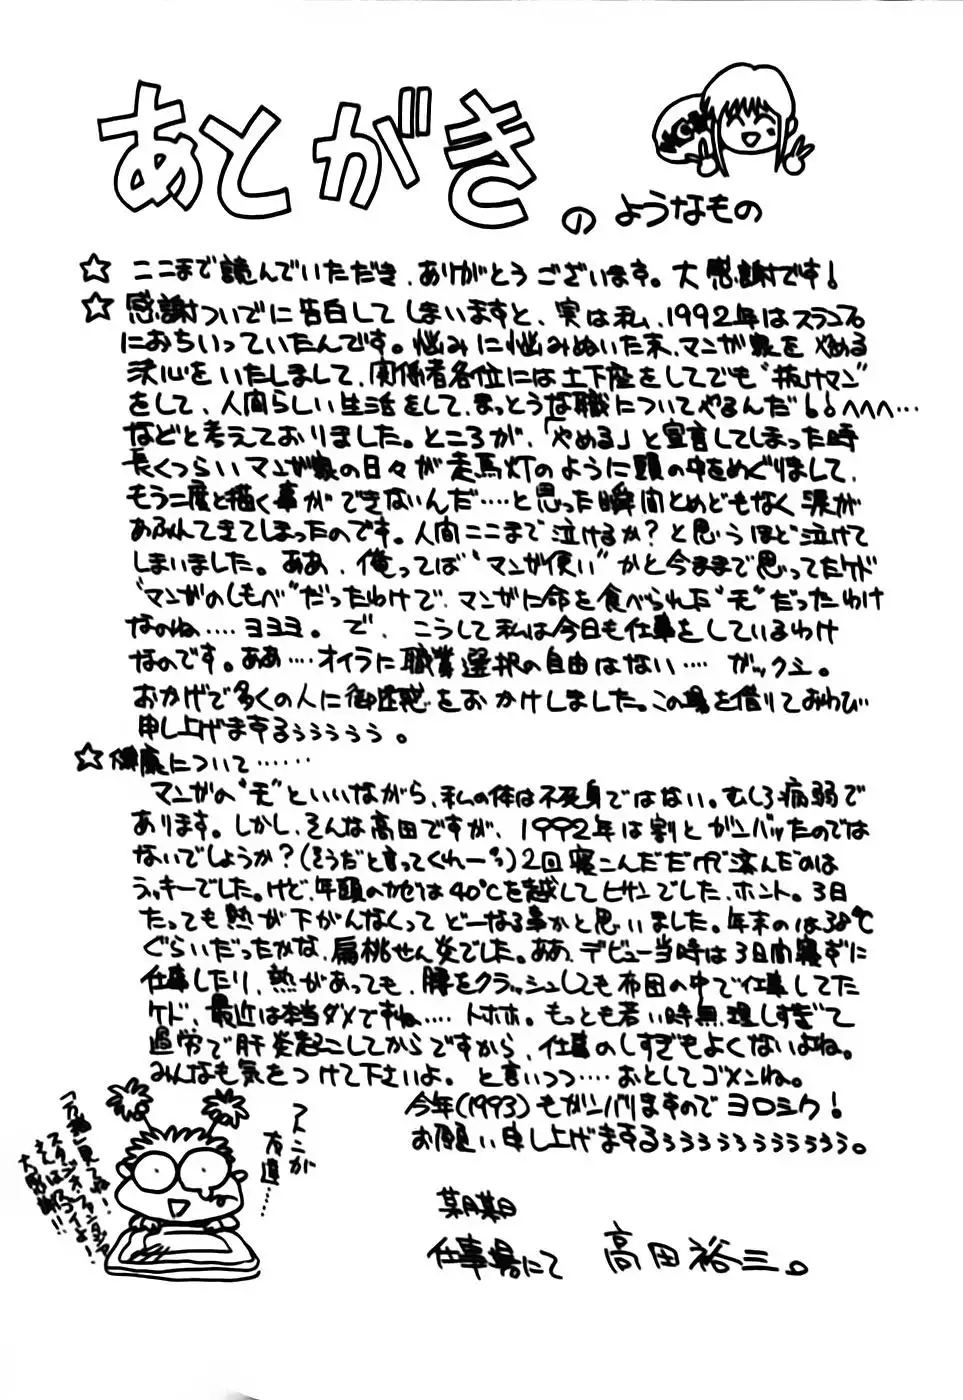 あとがき
の ようなもの
☆ ここまで読んでいただき、ありがとうございます。大感謝です!
☆ 感謝ついでに告白してしまいますと、実は私、1992年はスランプ
におちいっていたんです。悩みに悩みぬいた末、マンガ家をやめる
決心をいたしまして、関係者各位には土下座をしてでも“抜けマン”
をして、人間らしい生活をして、まっとうな職についてやるんだ!!へへへ…
などと考えておりました。ところが、「やめる」と宣言してしまった時
長くつらいマンガ家の日々が走馬灯のように頭の中をめぐりまして、
もう二度と描く事ができないんだ……と思った瞬間とめどもなく涙が
あふれてきてしまったのです。人間ここまで泣けるか?と思うほど泣けて
しまいました。ああ、俺ってば“マンガ使い”かと今まで思ってたケド
“マンガのしもべ”だったわけで、マンガに命を食べられた“无”だったわけ
なのね……ヨヨヨ。で、こうして私は今日も仕事をしているわけ
なのです。ああ……オイラに職業選択の自由はない…… ガックシ。
おかげで多くの人に御迷惑をおかけしました。この場を借りておわび
申し上げまするぅぅぅぅぅ。
☆ 健康について……
マンガの“无”といいながら、私の体は不死身ではない。むしろ病弱で
あります。しかし、そんな高田ですが、1992年は割とガンバッたのでは
ないでしょうか?(そうだと言ってくれー)2回寝こんだだけで済んだのは
ラッキーでした。けど、年頭のカゼは40℃を越してビサンでした、ホント。3日
たっても熱が下がんなくってどーなる事かと思いました。年末のは38℃
ぐらいだったかな、扁桃せん炎でした。ああ、デビュー当時は3日間寝ずに
仕事したり、熱があっても、腰をクラッシュしても布団の中で仕事してた
ケド、最近は本当ダメですね…… トホホ。もっとも若い時無理しすぎて
過労で肝炎起こしてからですから、仕事のしすぎもよくないよね。
みんなも気をつけて下さいよ。と言いつつ……おとしてゴメンね。
今年(1993)もガンバりますのでヨロシク!
お願い申し上げまするぅぅぅぅぅぅぅぅぅぅぅ。
アんこが
友達……
「万猫」見てね!
スタジオ・ファンタジア
さんはスゴイよ!
大感謝!!
某月某日
仕事場にて 高田裕三。